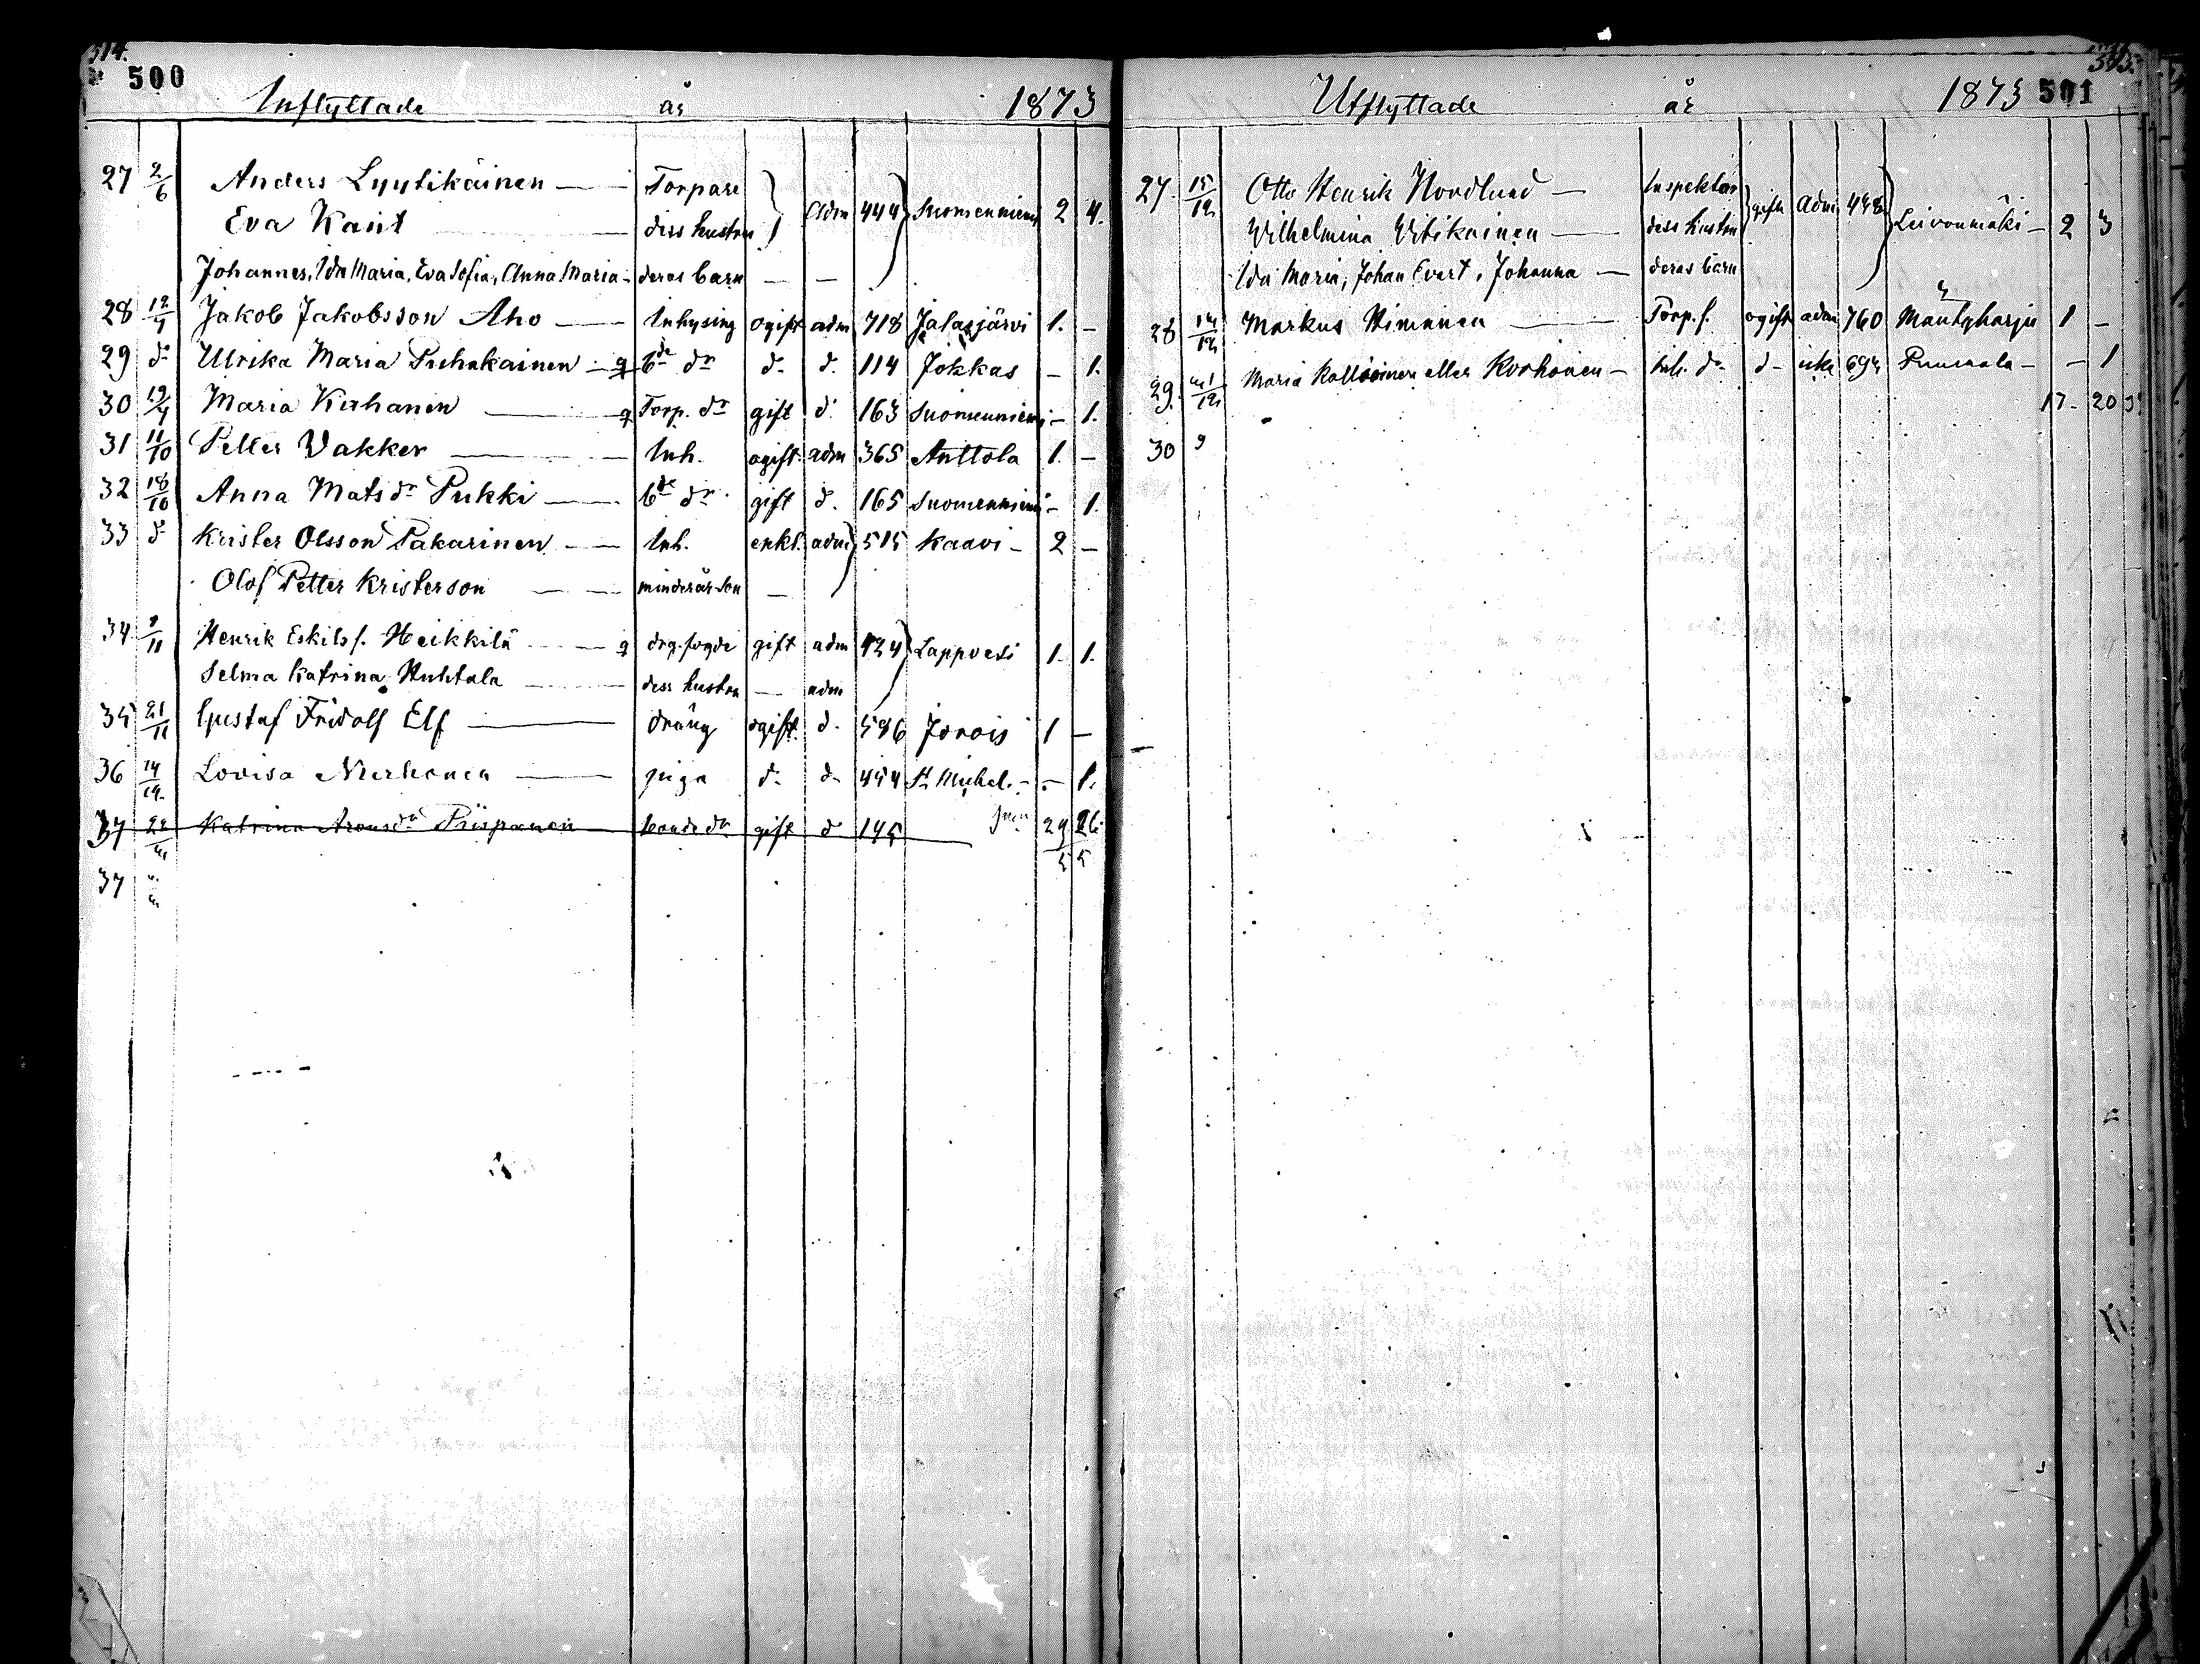 514.
500
Inflyttade år 1873
27 2/6 Anders Lyytikäinen — Torpare
Eva Kant — dess hustru adm 444 Suomenniemi 2 4.
Johannes, Ida Maria, Eva Sofia, Anna Maria - deras barn — —
28 12/7 Jakob Jakobsson Aho — Inhysing ogift adm 718 Jalasjärvi 1. -
29 d:o Ulrika Maria Puhakainen - bde dr d. d. 114 Jokkas - 1.
30 19/7 Maria Kiahanen — Torp. dr gift d. 163 Suomenniemi - 1.
31 11/10 Petter Vakker — Inh. ogift adm 365 Anttola 1. -
32 18/10 Anna Mats dr Pukki — bde dr gift d. 165 Suomenniemi - 1.
33 d:o Krister Olsson Pakarinen — Inh. enkl. adm 515 Kaavi - 2 -
Olof Petter Kristerson — minderår. son —
34 9/11 Henrik Eskils f. Heikkilä — drg. fogde gift adm 424 Lappvesi 1. 1.
Selma Katrina Huhtala — dess hustru — adm
35 21/11 Gustaf Fridolf Elf — dräng ogift. d. 596 Jorois 1 -
36 14/12 Lovisa Nurhonen — piga d. d. 444 St Michel. - - 1.
37 22 Katrina Aronsdr Piispanen bonde dr gift d 145 29 26
37
515.
Utflyttade år 1873 501
27. 15/12 Otto Henrik Nordlund — Inspektor
Wilhelmina Vitikainen — dess hustru gifta Adm 448 Leivonmäki - 2 3
Ida Maria, Johan Evert, Johanna — deras barn
28 14/12 Markus Himanen — Torp. f. ogift adm 760 Mäntyharju 1 -
29. Maria Kolloinen eller Korhonen - d - Puumala - - 1
17. 20
30